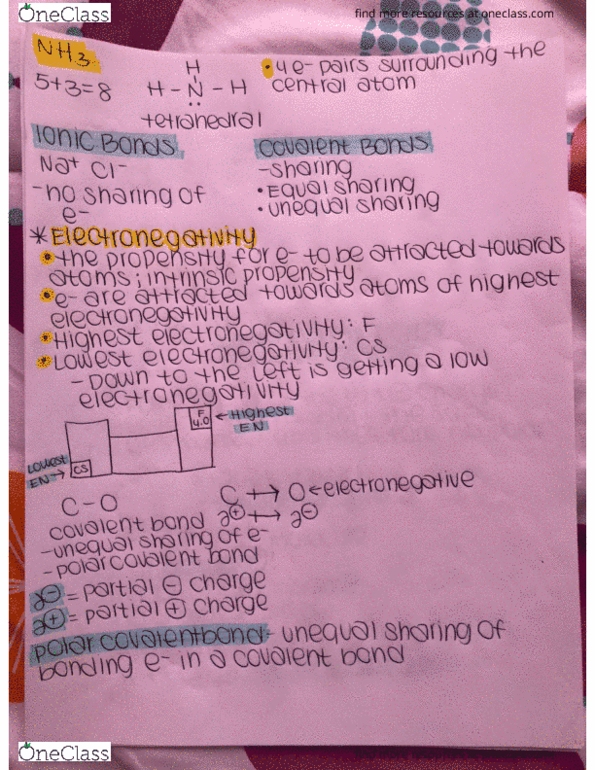 OneClass
find more resources at oneclass.com
NH3
5+3=8
H
H-N-H
tetrahedral
• 4 e- pairs surrounding the
central atom
Ionic Bonds
Na+ Cl-
-no sharing of
e-
Covalent Bonds
-sharing
• Equal sharing
• unequal sharing
* Electronegativity
• the propensity for e- to be attracted towards
atoms; intrinsic propensity
• e- are attracted towards atoms of highest
electronegativity
• Highest electronegativity: F
• Lowest electronegativity: Cs
- Down to the left is getting a low
electronegativity
F
4.0
← Highest
EN
Lowest
EN →
Cs
C-O
C ↦ O ← electronegative
∂⊕ ↦ ∂⊖
covalent bond
-unequal sharing of e-
-polar covalent bond
∂⊖ = partial ⊖ charge
∂⊕ = partial ⊕ charge
polar covalent bond - unequal sharing of
bonding e- in a covalent bond
OneClass
OneClass